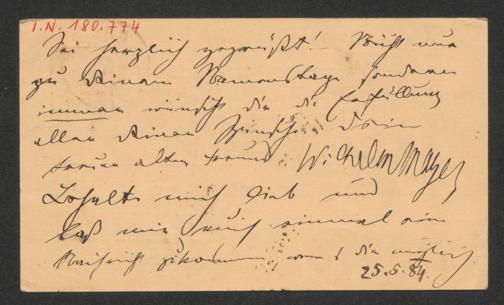 I.N. 180.774
Sei herzlich gegrüßt! Nicht nur
zu Deinem Namenstage sondern
immer wünscht Dir die Erfüllung
aller Deiner Wünsche Dein
treuer alter Freund Wilhelm Mayer
Behalte mich lieb und
laß mir auch einmal eine
Nachricht zukommen, wenn's Dir möglich
25.5.84.